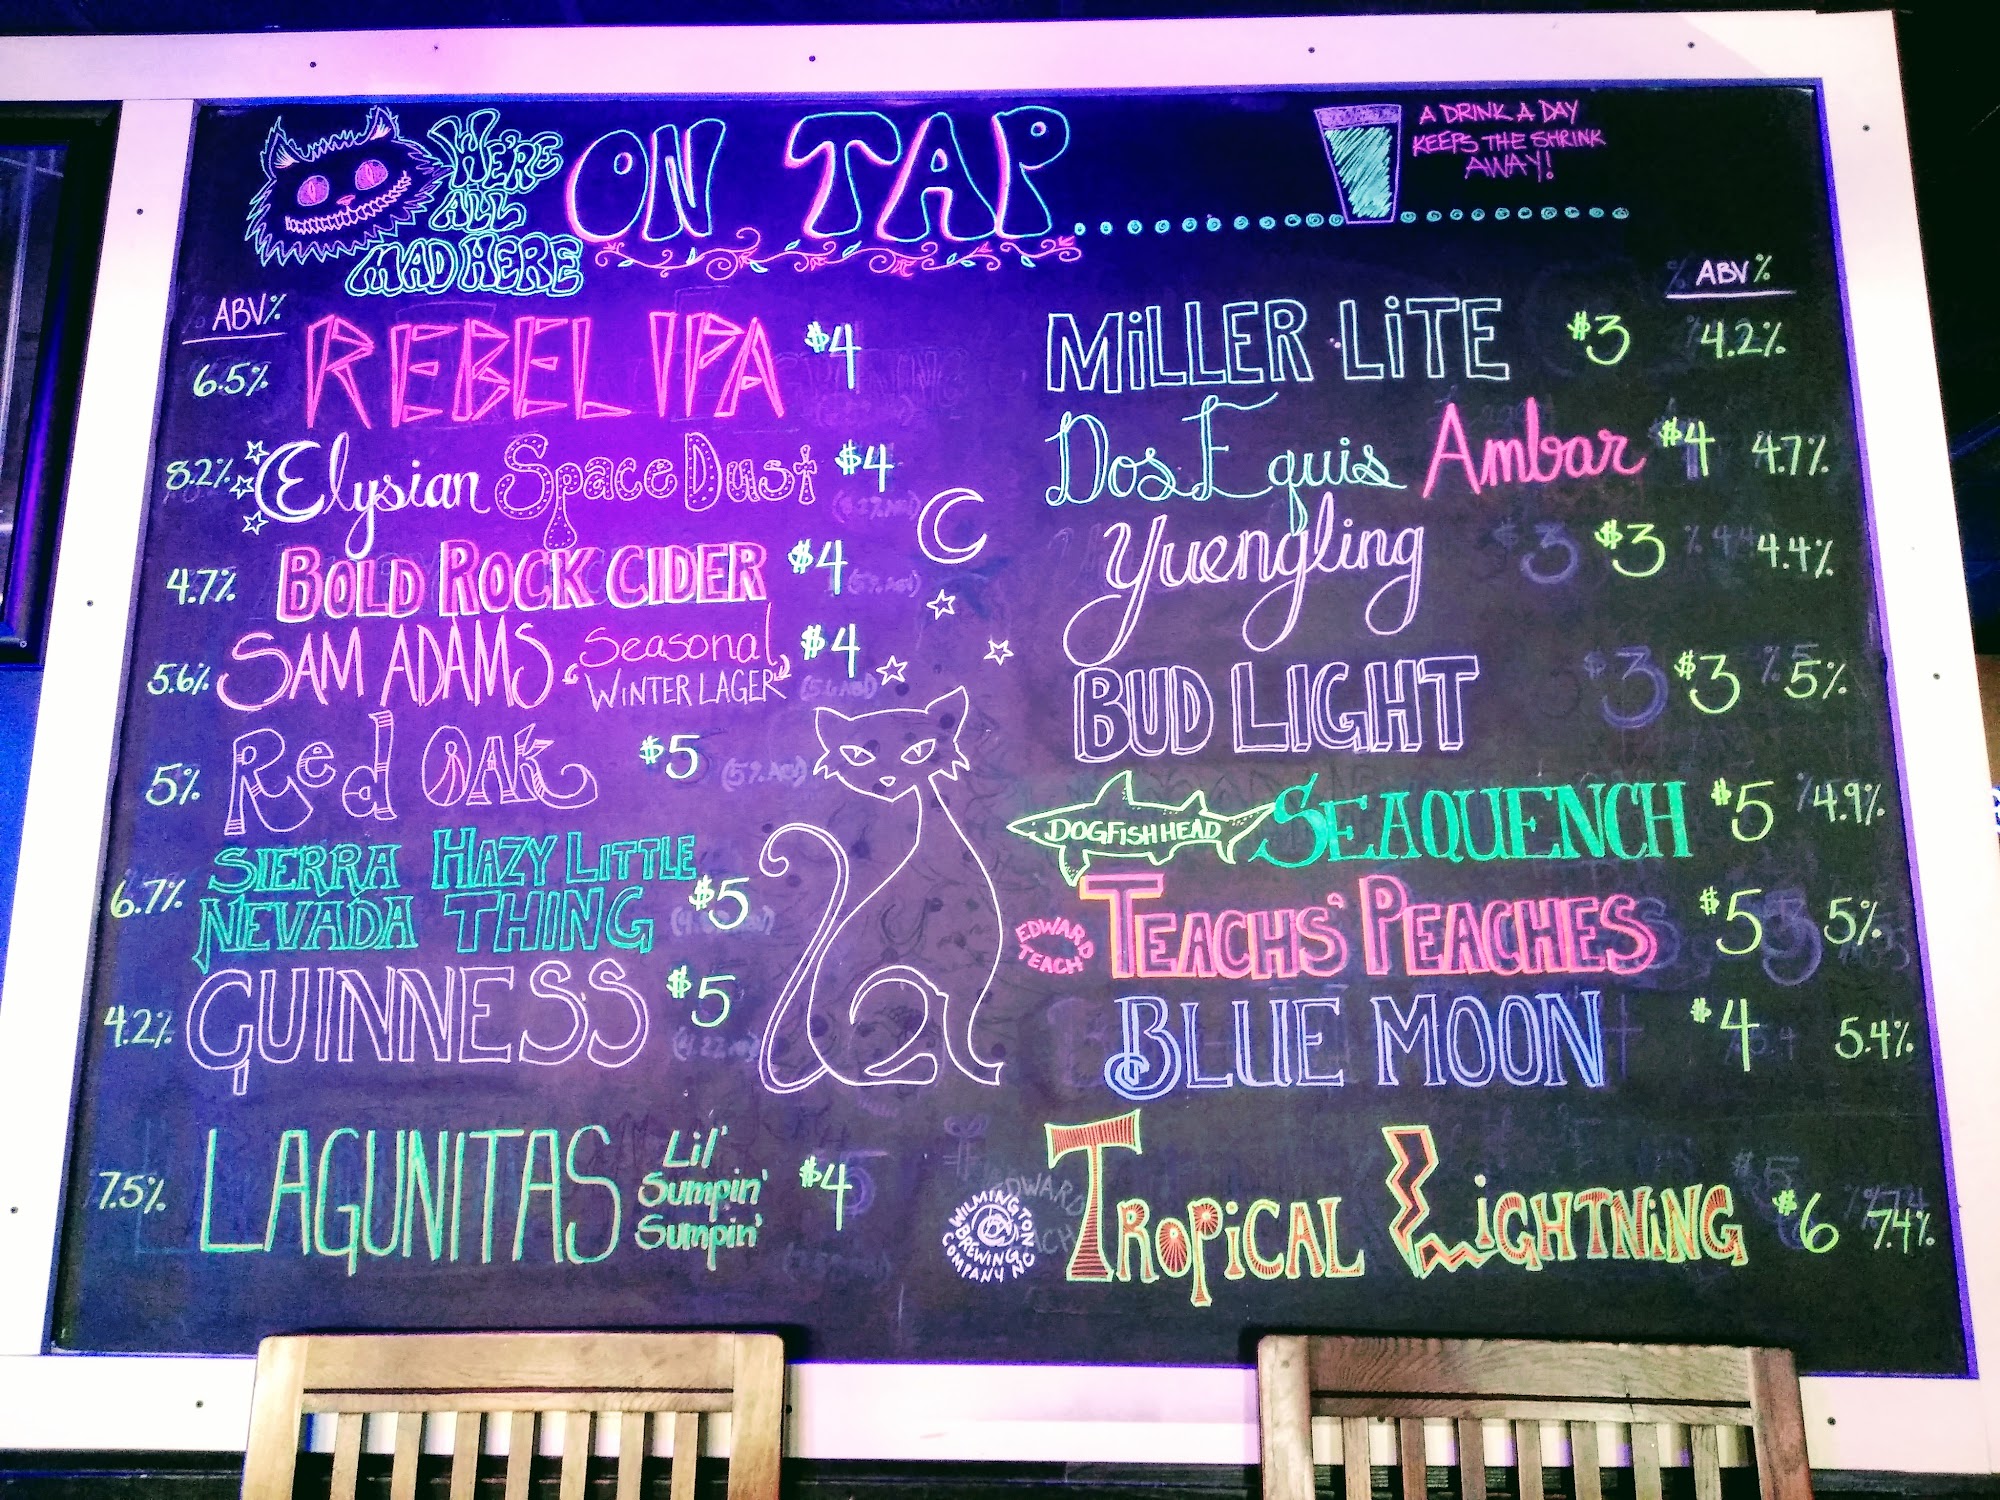 WE'RE
ALL
MAD HERE
ON TAP
A DRINK A DAY
KEEPS THE SHRINK
AWAY!
ABV%
6.5% REBEL IPA $4
8.2% Elysian Space Dust $4
4.7% BOLD ROCK CIDER $4
5.6% SAM ADAMS Seasonal $4
"WINTER LAGER"
5% Red OAK $5
6.7% SIERRA NEVADA HAZY LITTLE THING $5
4.2% GUINNESS $5
7.5% LAGUNITAS Lil' Sumpin' Sumpin' $4
% ABV%
MiLLER LiTE $3 4.2%
Dos Equis Ambar $4 4.7%
Yuengling $3 4.4%
BUD LIGHT $3 5%
DOGFISH HEAD SEAQUENCH $5 4.9%
EDWARD TEACH TEACHS' PEACHES $5 5%
BLUE MOON $4 5.4%
WILMINGTON BREWING COMPANY NC TROPiCAL LiGHTNiNG $6 7.4%